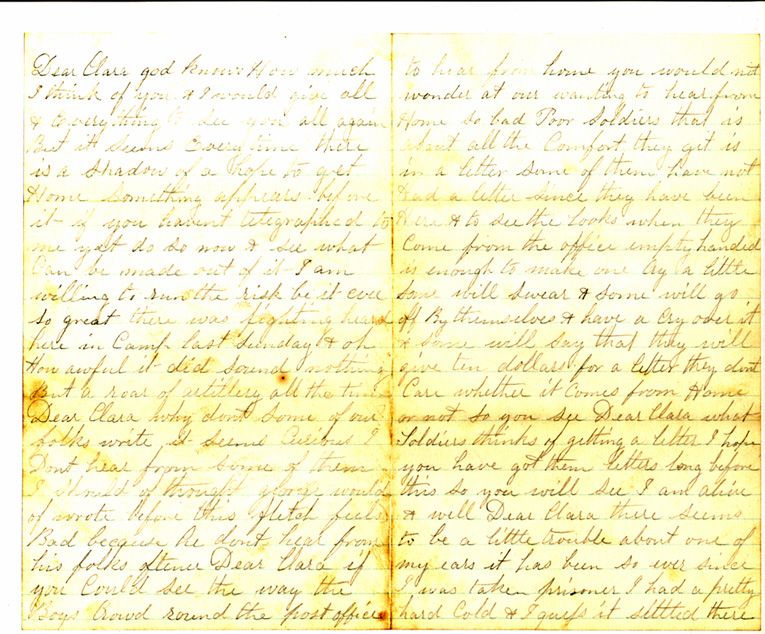 Dear Clara god knows How much
I think of you & I would give all
& Everything to see you all again
But it seems Everytime there
is a shadow of a hope to get
Home Something appears before
it if you havent telegraphed to
me yet do so now & see what
Can be made out of it I am
willing to run the risk be it ever
so great there was fighting heard
here in Camp last Sunday & oh
How awful it did sound nothing
But a roar of artillery all the time
Dear Clara why dont some of our
folks write it seems Curious I
Dont hear from some of them
I should of thought george would
of wrote before this fletch feels
Bad because he dont hear from
his folks oftener Dear Clara if
you Could see the way the
Boys Crowd round the post office
to hear from home you would not
wonder at our wanting to hear from
Home so bad Poor Soldiers that is
about all the Comfort they get is
in a letter some of them have not
had a letter since they have been
Here & to see the looks when they
Come from the office empty handed
is enough to make one Cry a little
some will swear & some will go
off By themselves & have a Cry over it
& some will say that they will
give ten dollars for a letter they dont
Care whether it Comes from Home
or not so you see Dear Clara what
Soldiers thinks of getting a letter I hope
you have got them letters long before
this so you will see I am alive
& well Dear Clara there seems
to be a little trouble about one of
my ears it has been so ever since
I was taken prisoner I had a pretty
hard Cold & I guess it settled there